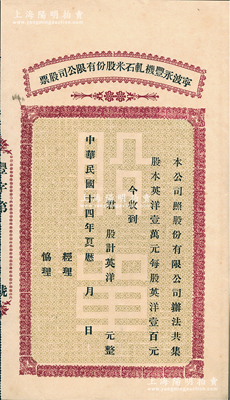 上海陽明拍賣
寧波永豐機軋石米股份有限公司股票
本公司照股份有限公司辦法共集
股本英洋壹萬元每股英洋壹百元
今收到
君 股計英洋 元整
中華民國十四年夏曆 月 日
經理
協理
字第 號
上海陽明拍賣